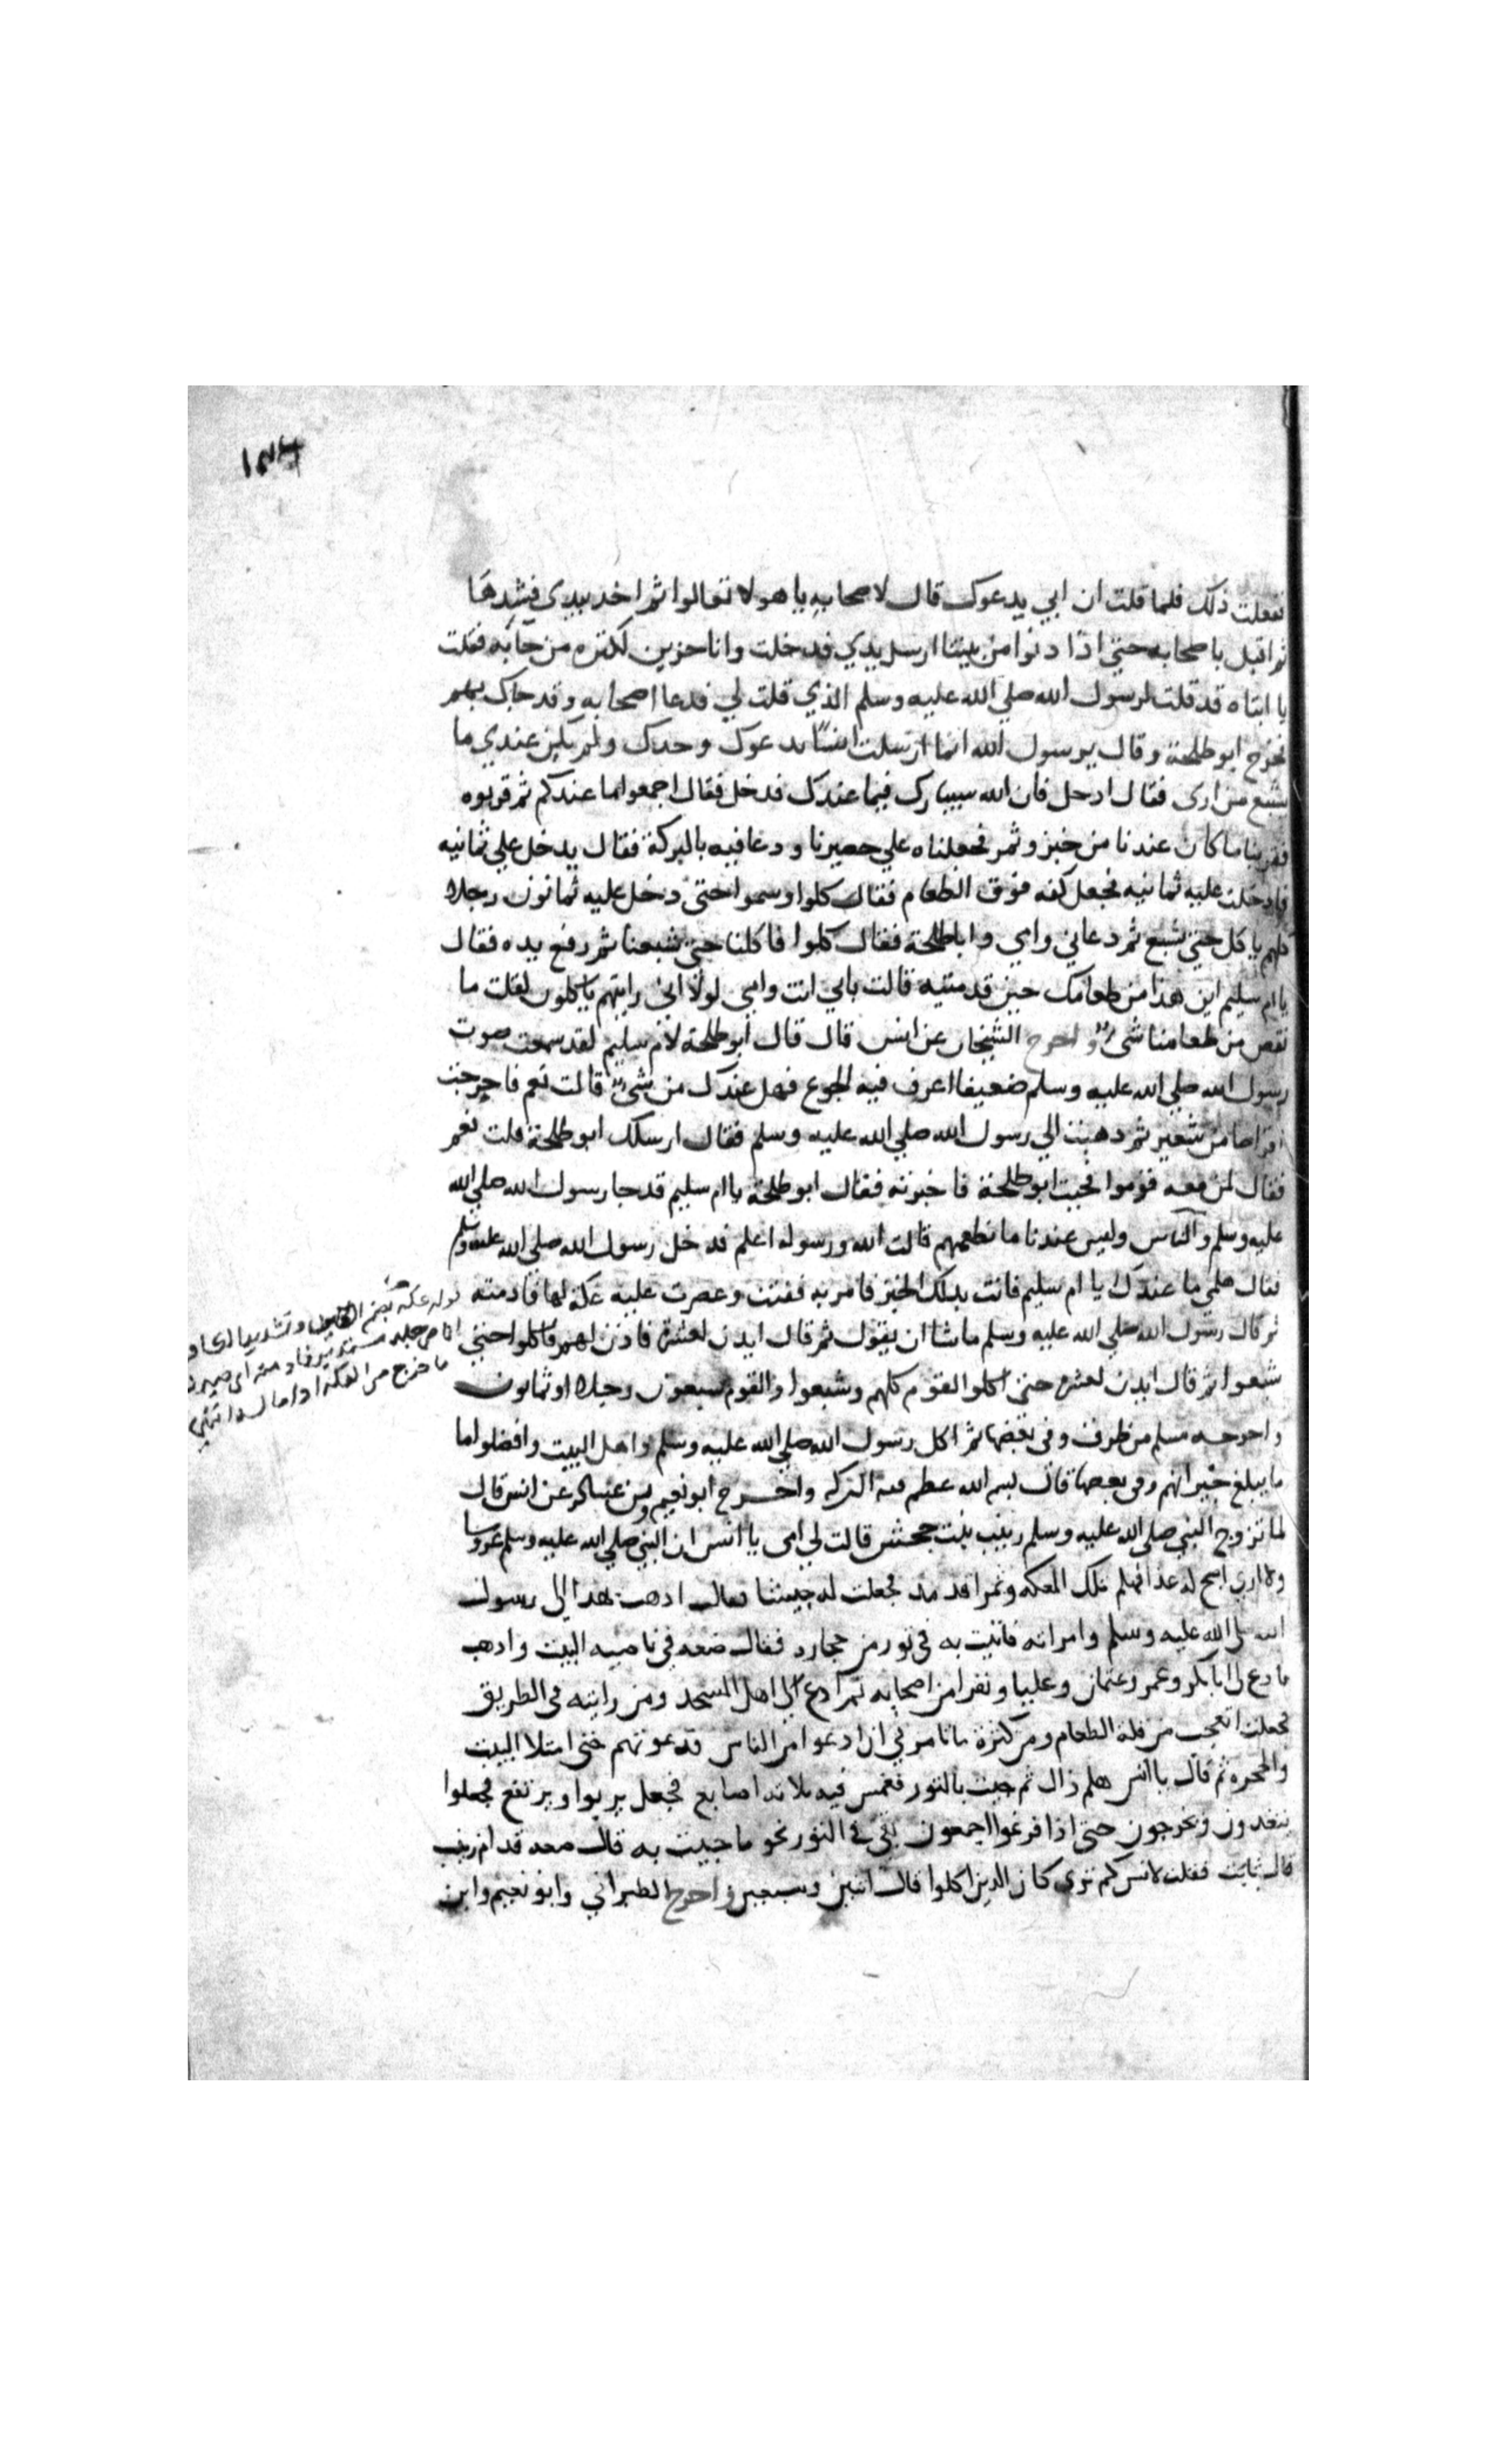 ففعلت ذلك فلما قلت ان ابي يدعوك قال لاصحابه يا هولا تعالوا ثم اخذ بيدي فشدها
ثم اقبل باصحابه حتي اذا دنوا من بيتنا ارسل يدي فدخلت وانا حزين لكثره من جا به فقلت
يا ابتاه قد قلت لرسول الله صلي الله عليه وسلم الذي قلت لي فدعا اصحابه وقد جاك بهم
فخرج ابو طلحة وقال يرسول الله انما ارسلت انسا يدعوك وحدك ولم يكن عندي ما
يشبع من اري فقال ادخل فان الله سيبارك فيما عندك فدخل فقال اجمعوا ما عندكم ثم قربوه
فقربنا ما كان عندنا من خبز وتمر فجعلناه علي حصيرنا ودعا فيه بالبركة فقال يدخل علي ثمانيه
فادخلت عليه ثمانيه فجعل كفه فوق الطعام فقال كلوا وسموا حتي دخل عليه ثمانون رجلا
كلهم ياكل حتي شبع ثم دعاني وامي وابا طلحة فقال كلوا فاكلنا حتي شبعنا ثم رفع يده فقال
يا ام سليم اين هذا من طعامك حين قدمتيه قالت بابي انت وامي لولا اني رايتهم ياكلون لقلت ما
نقص من طعامنا شي واخرج الشيخان عن انس قال قال ابو طلحة لام سليم لقد سمعت صوت
رسول الله صلي الله عليه وسلم ضعيفا اعرف فيه الجوع فهل عندك من شي قالت نعم فاخرجت
اقراصا من شعير ثم دهبت الي رسول الله صلي الله عليه وسلم فقال ارسلك ابو طلحة قلت نعم
فقال لمن معه قوموا فجيت ابو طلحة فاخبرته فقال ابو طلحة يا ام سليم قد جا رسول الله صلي الله
عليه وسلم والناس وليس عندنا ما نطعمهم قالت الله ورسوله اعلم فدخل رسول الله صلي الله عليه وسلم
فقال هلمي ما عندك يا ام سليم فاتت بدلك الخبز فامر به ففتت وعصرت عليه عكة لها فادمته
ثم قال رسول الله صلي الله عليه وسلم ما شا ان يقول ثم قال ايدن لعشرة فاذن لهم فاكلوا حتي
شبعوا ثم قال ايدن لعشرة حتي اكلوا القوم كلهم وشبعوا والقوم سبعون رجلا او ثمانون
واخرجه مسلم من طرف وفي بعضها ثم اكل رسول الله صلي الله عليه وسلم واهل البيت وافضلوا ما
ما يبلغ جيرانهم وفي بعضها قال بسم الله عظم فيه البركه واخرج ابو نعيم وبن عساكر عن انس قال
لما تزوج النبي صلي الله عليه وسلم زينب بنت جحش قالت لي امي يا انس ان النبي صلي الله عليه وسلم عروسا
ولا اري اصبح له غدا فهلم تلك العكه وتمرا قد مد فجعلت له حيسا فقال ادهب بهدا الي رسول
الله صلي الله عليه وسلم وامراته فاتيت به في تور من حجارة فقال ضعه في ناحيه البيت وادهب
فادع لي ابا بكر وعمر وعثمان وعليا ونفرا من اصحابه ثم ادع لي اهل المسجد ومن رايته في الطريق
فجعلت اتعجب من قلة الطعام ومن كثرة ما تامرني ان ادعوا من الناس فدعوتهم حتي امتلا البيت
والحجره ثم قال يا انس هلم ذاك ثم جيت بالتور فغمس فيه ثلاثه اصابع فجعل يربوا ويرتفع فجعلوا
يتغدون ويخرجون حتي اذا فرغوا اجمعون بقي في التور نحو ما جيت به قال ضعه قدام زينب
قال ثابت فقلت لانس كم تري كان الدين اكلوا قال اثنين وسبعين واخرج الطبراني وابو نعيم وابن
قوله عكه بضم العين وتشديد الكاف
انا من جلد مستدير فادمته اي صيرت
ما خرج من العكة اداما له